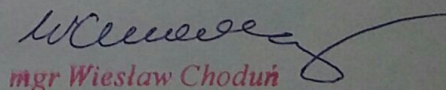 mgr Wiesław Choduń